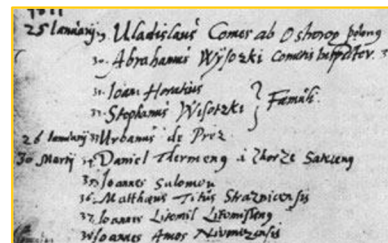 25 Ianuarij 29. Uladislaus Comes ab Ostorop polonq
30. Abrahamus Wÿsozki Comitis
31. Ioan: Horatius
32. Stephanus Wisotzki } Famuli.
26 Ianuarij 33 Urbanus de Prez
30 Martij 34. Daniel Thermeng
35. Ioannes Salomon
36. Matthæus Titus Straznicensis
37. Ioannes Litomil
38 Ioannes Amos Nivnizensis